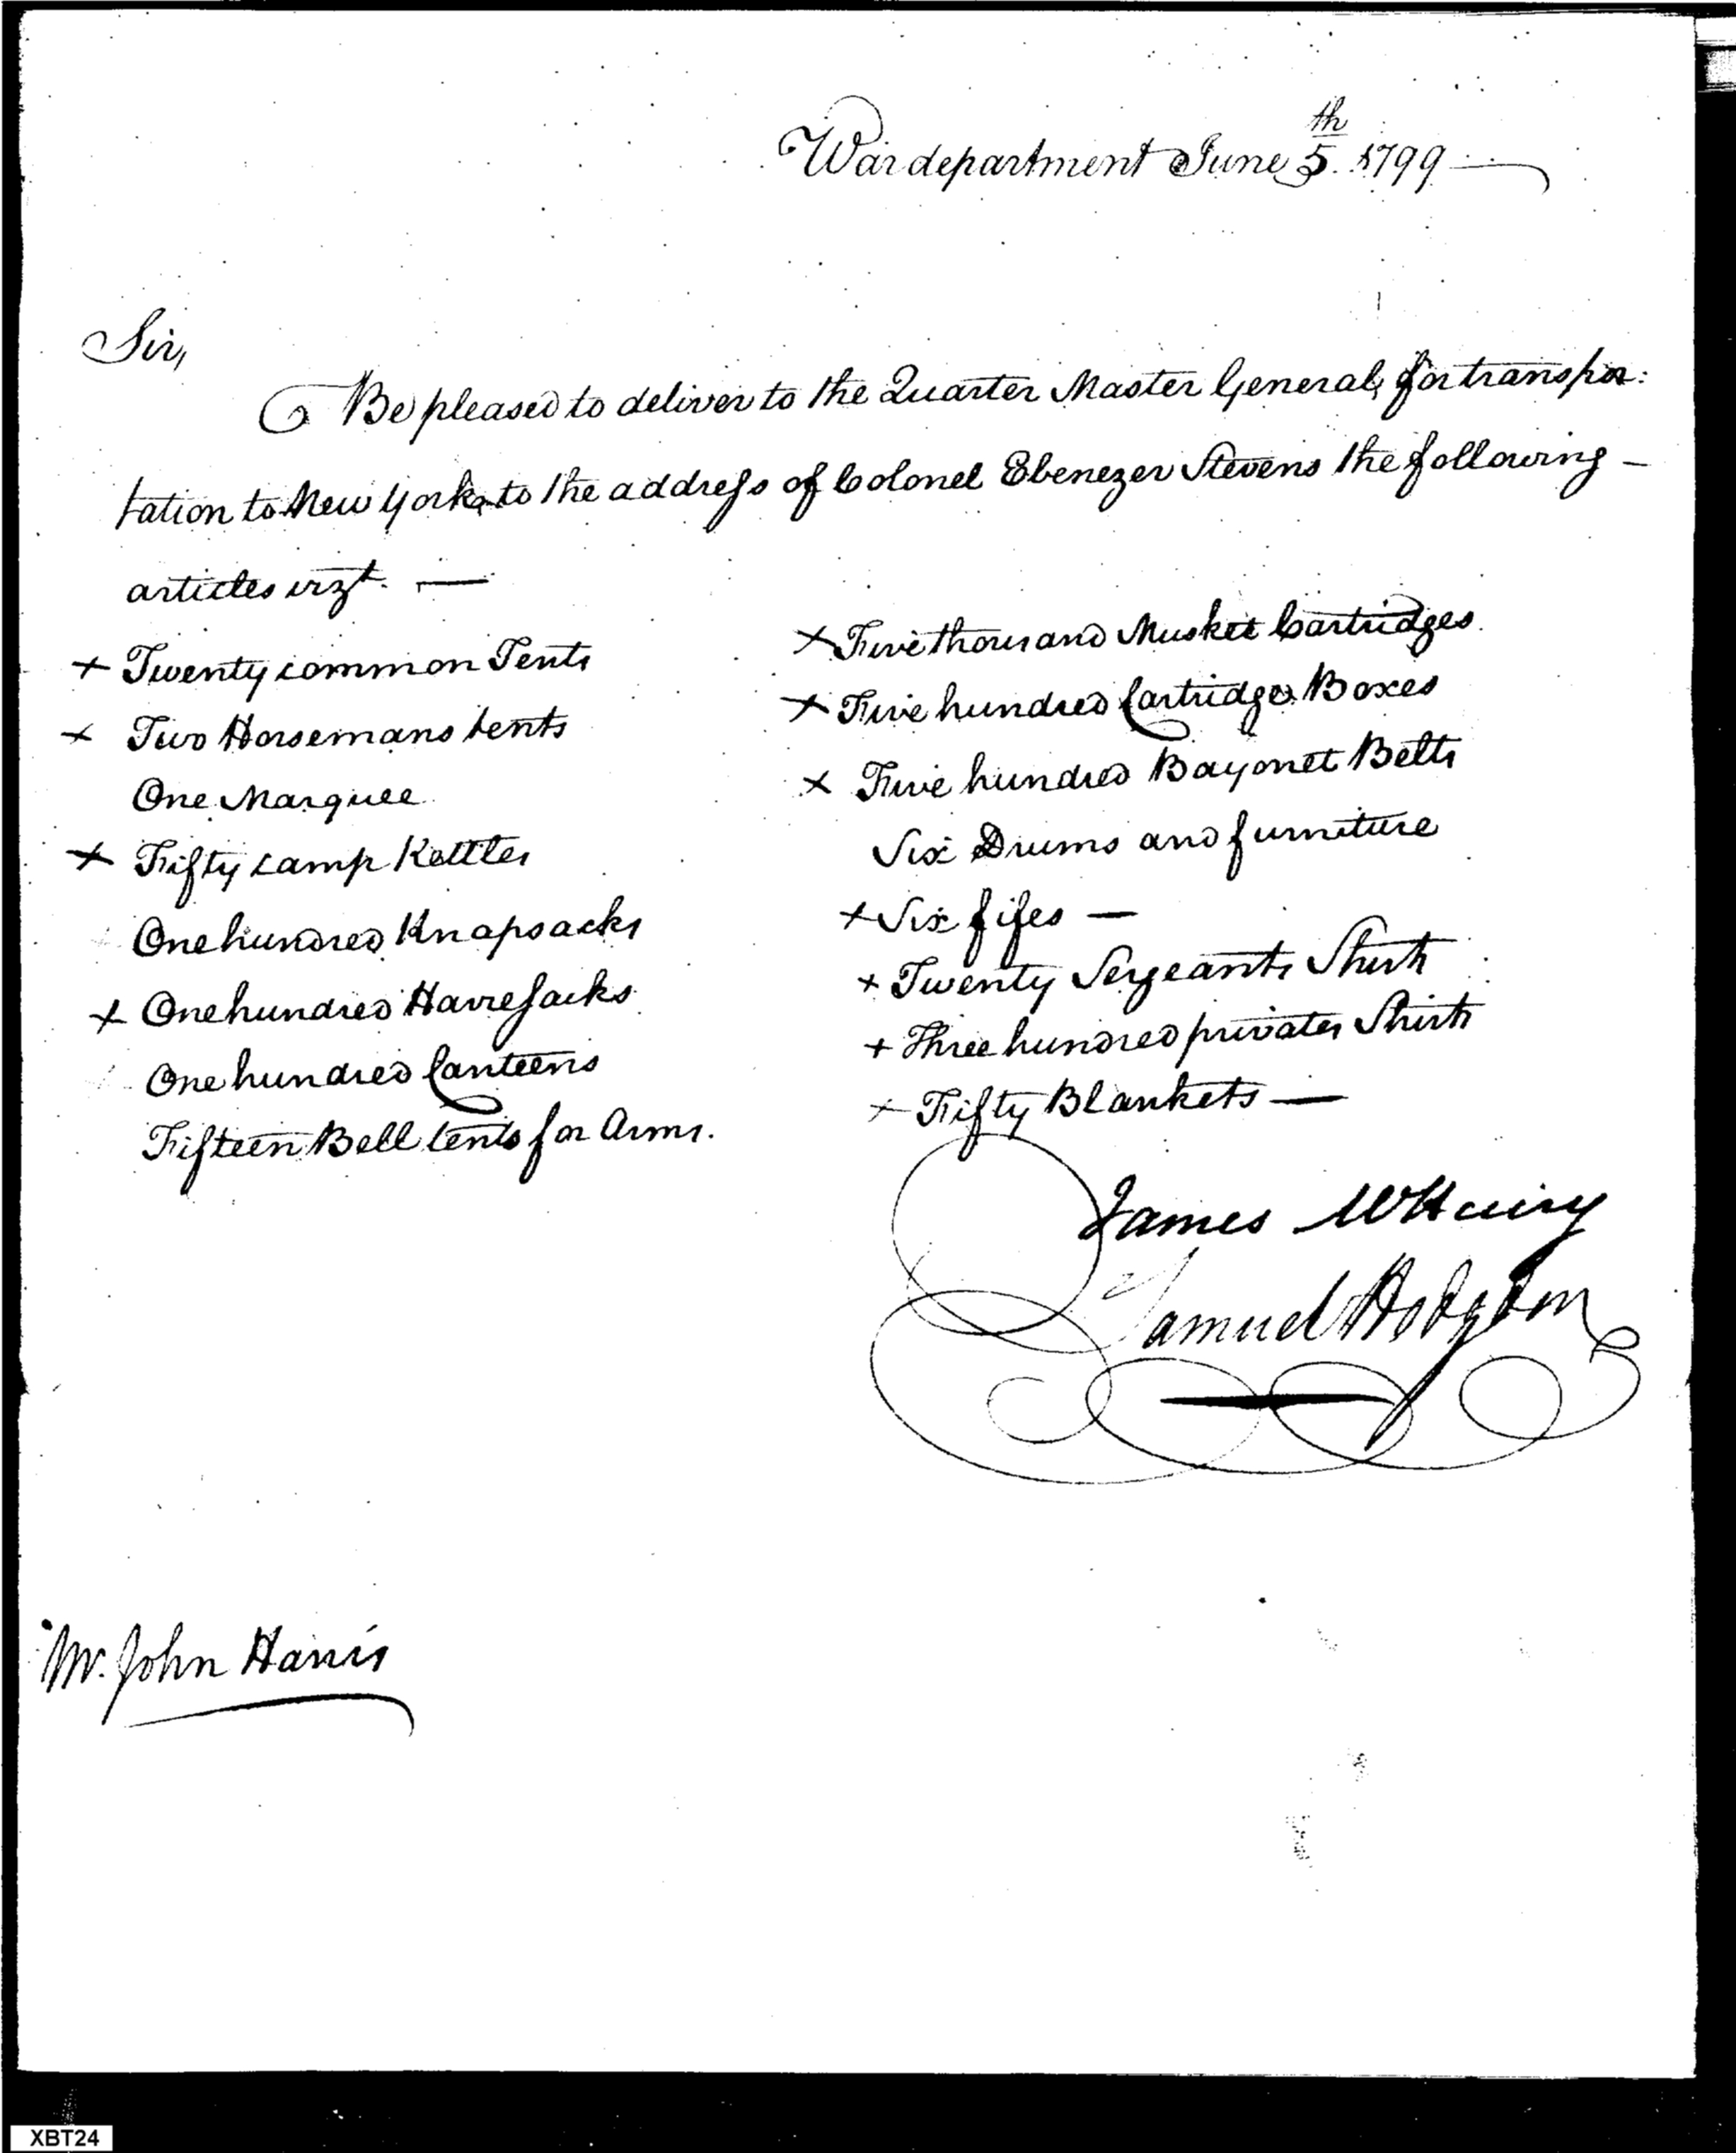 War department June 5th 1799
Sir,
Be pleased to deliver to the Quarter Master General, for transpor:
tation to New York, to the address of Colonel Ebenezer Stevens the following –
articles vizt. —
+ Twenty common Tents
+ Two Horsemans tents
One Marquee
+ Fifty camp Kettles
One hundred Knapsacks
+ One hundred Havresacks
One hundred Canteens
Fifteen Bell tents for Arms.
+ Five thousand Musket Cartridges
+ Five hundred Cartridge Boxes
+ Five hundred Bayonet Belts
Six Drums and furniture
+ Six fifes —
+ Twenty Sergeants Shirts
+ Three hundred privates Shirts
+ Fifty Blankets —
James McHenry
Samuel Hodgdon
Mr. John Harris
XBT24